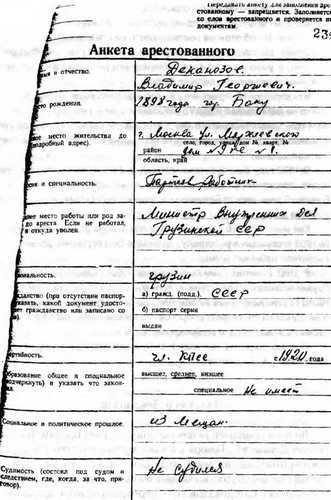 Передавать анкету для заполнения аре-
стованному — запрещается. Заполняется
со слов арестованного и проверяется п
документам.
23
Анкета арестованного
и отчество.
Деканозов
Владимир Георгиевич.
рождения.
1898 года гор. Баку
место жительства до
подробный адрес).
г. Москва ул.
село, город, улица, дом №, кварт. №
район
дом
область, край
и специальность.
Партийн. работник
место работы или род за-
до ареста. Если не работал,
откуда уволен.
Министр Внутренних Дел
Грузинской ССР
грузин
(при отсутствии паспор-
указать, какой документ удосто-
ет гражданство или записано со
а) гражд. (подд.) СССР
б) паспорт серия
выдан
чл. КПСС с 1920 года
образование общее и специальное
подчеркнуть) и указать что закон-
высшее, среднее, низшее
специальное Не имеет
Социальное и политическое прошлое.
из Мещан.
Судимость (состоял под судом и
следствием, где, когда, за что, при-
говор).
Не судился